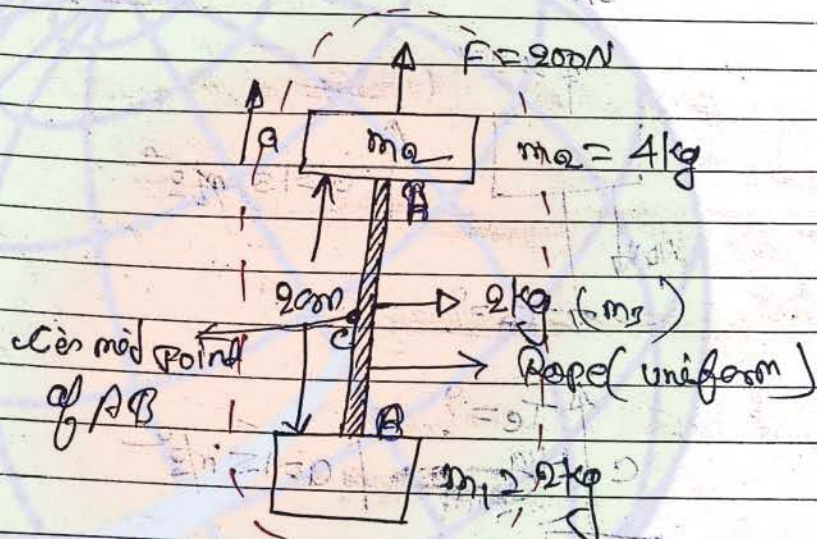 F = 200N
a
m2
m2 = 4kg
A
20m
2kg (m3)
C is mid point
of AB
C
Rope (uniform)
B
m1 = 2kg